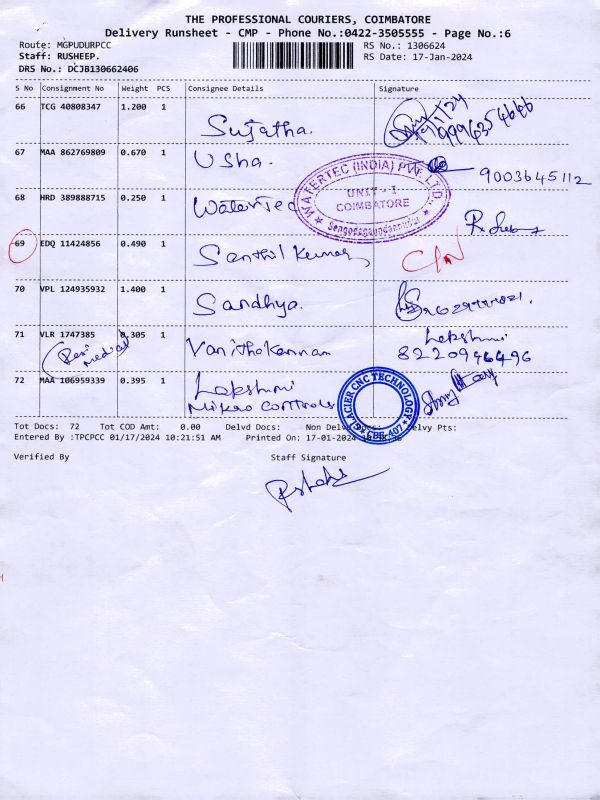 THE PROFESSIONAL COURIERS, COIMBATORE
Delivery Runsheet - CMP - Phone No.:0422-3505555 - Page No.:6
Route: MGPUDURPCC
RS No.: 1306624
Staff: RUSHEEP.
RS Date: 17-Jan-2024
DRS No.: DCJB130662406
S No Consignment No Weight PCS Consignee Details Signature
66 TCG 40808347 1.200 1
Sujatha.
67 MAA 862769809 0.670 1
Usha.
9003645112
WATERTEC (INDIA) PVT. LTD.
UNIT - I
COIMBATORE
68 HRD 389888715 0.250 1
WaterTec
69 EDQ 11424856 0.490 1
Santhil Kumar
70 VPL 124935932 1.400 1
Sandhya.
71 VLR 1747385 0.305 1
Vanithakannan
Lakshmi
8220946496
72 MAA 106959339 0.395 1
Lakshmi
Mikro Controls
CNC TECHNOLOGY
CBE-407
Tot Docs: 72 Tot COD Amt: 0.00 Delvd Docs: Non Delvd Docs: Delvy Pts:
Entered By :TPCPCC 01/17/2024 10:21:51 AM Printed On: 17-01-2024
Verified By Staff Signature